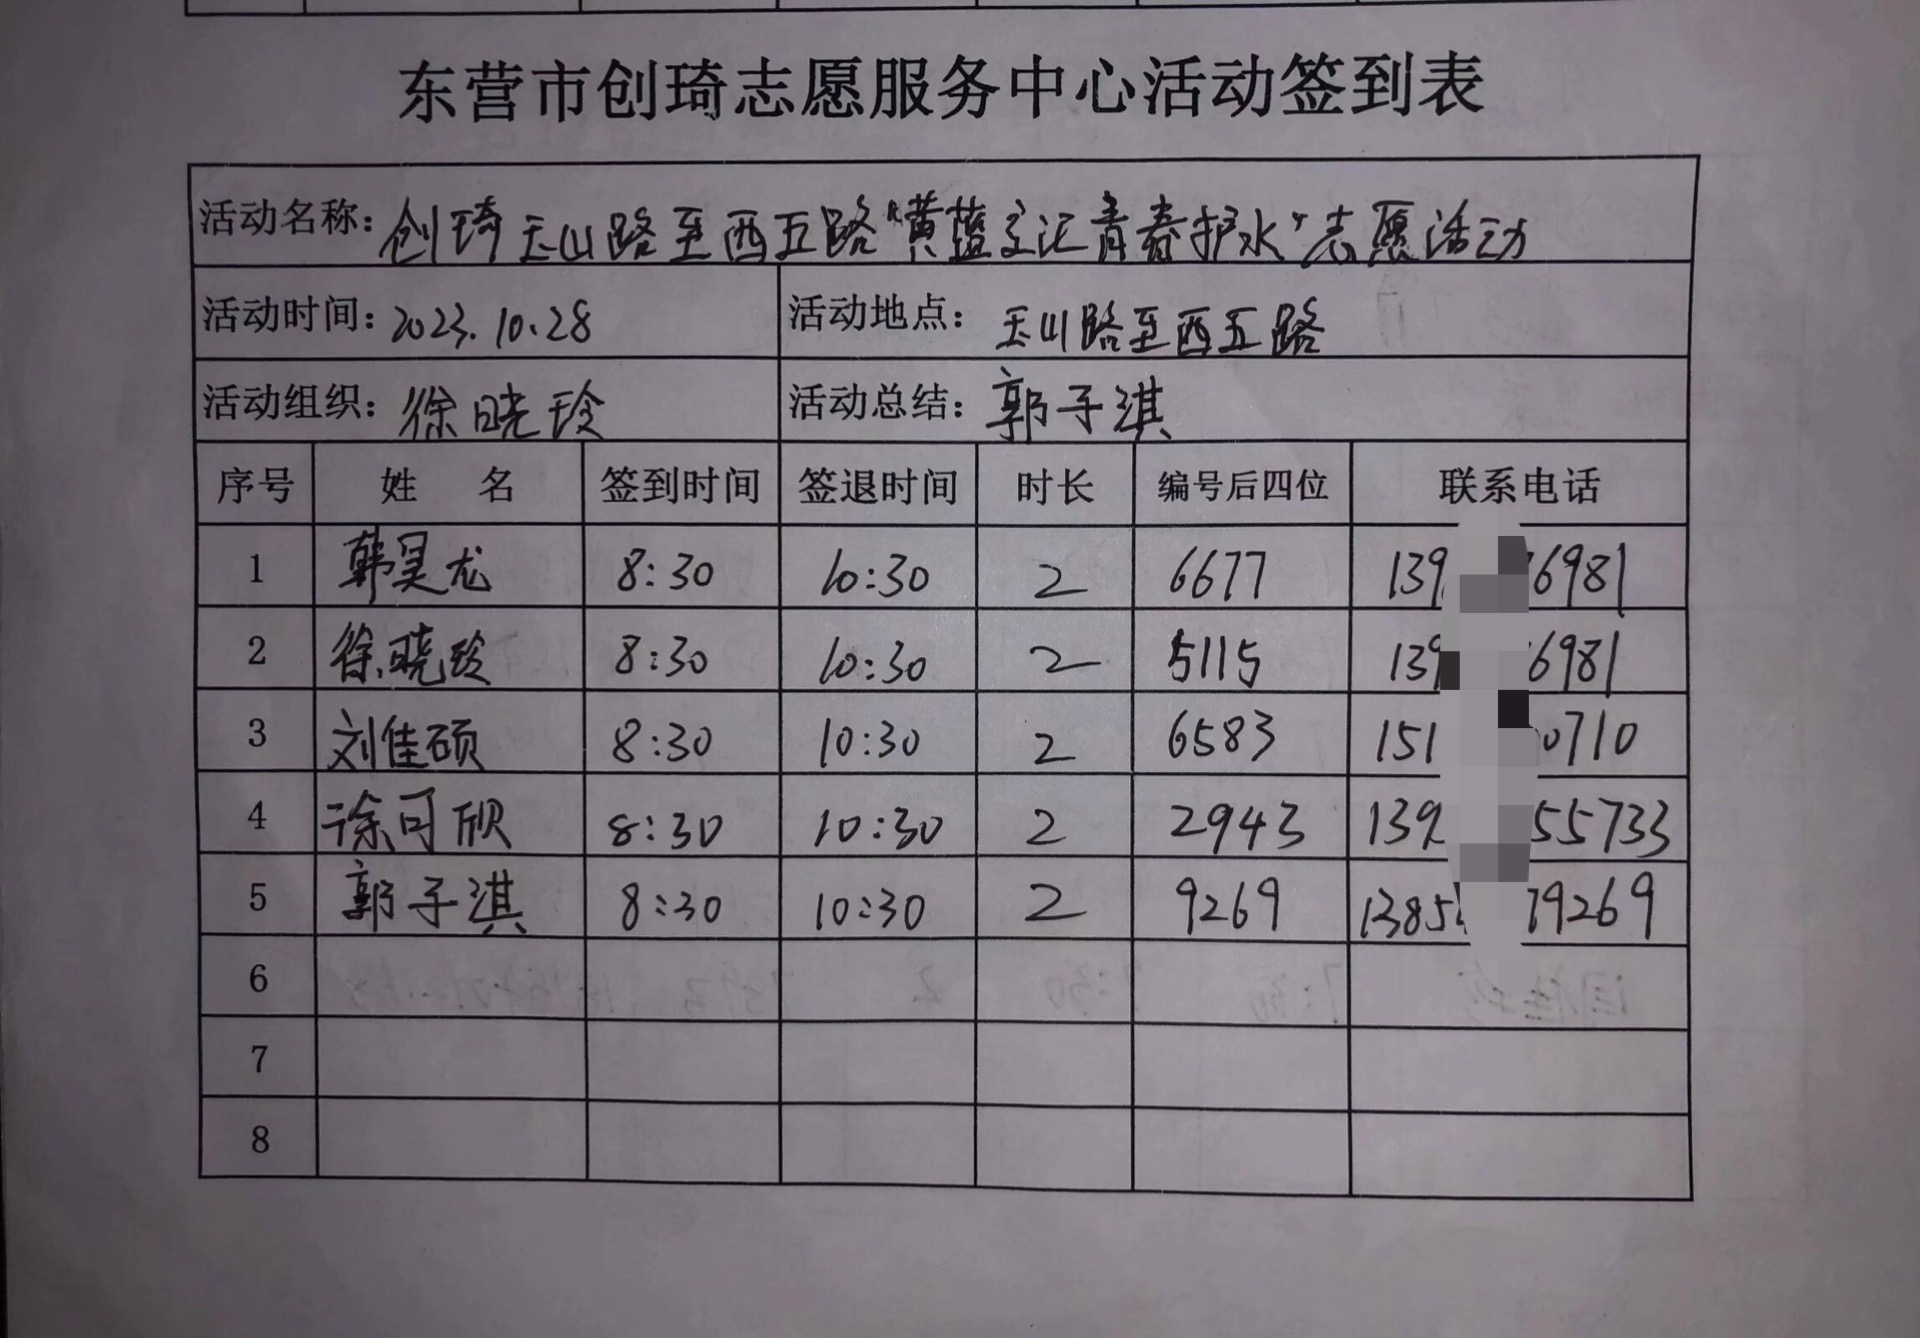 东营市创琦志愿服务中心活动签到表
活动名称: 创琦玉山路至西五路"黄蓝交汇青春护水"志愿活动
活动时间: 2023.10.28 活动地点: 玉山路至西五路
活动组织: 徐晓玲 活动总结: 郭子淇
序号 姓 名 签到时间 签退时间 时长 编号后四位 联系电话
1 韩昊龙 8:30 10:30 2 6677 139 6981
2 徐晓玲 8:30 10:30 2 5115 139 6981
3 刘佳硕 8:30 10:30 2 6583 151 0710
4 徐可欣 8:30 10:30 2 2943 139 55733
5 郭子淇 8:30 10:30 2 9269 1385 79269
6
7
8